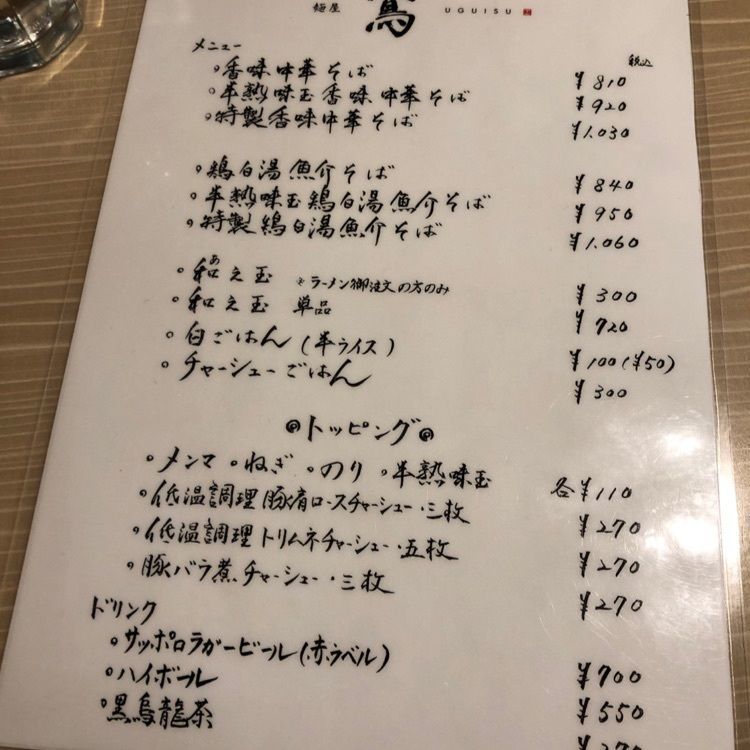 麺屋 鶯 UGUISU
メニュー 税込
。香味中華そば ¥810
。半熟味玉香味中華そば ¥920
。特製香味中華そば ¥1.030
。鶏白湯魚介そば ¥840
。半熟味玉鶏白湯魚介そば ¥950
。特製鶏白湯魚介そば ¥1.060
。和え玉 ※ラーメン御注文の方のみ ¥300
。和え玉 単品 ¥720
。白ごはん(半ライス) ¥100(¥50)
。チャーシューごはん ¥300
トッピング
。メンマ 。ねぎ 。のり 。半熟味玉 各¥110
。低温調理豚肩ロースチャーシュー・三枚 ¥270
。低温調理トリムネチャーシュー・五枚 ¥270
。豚バラ煮チャーシュー・三枚 ¥270
ドリンク
。サッポロラガービール(赤ラベル) ¥700
。ハイボール ¥550
。黒烏龍茶